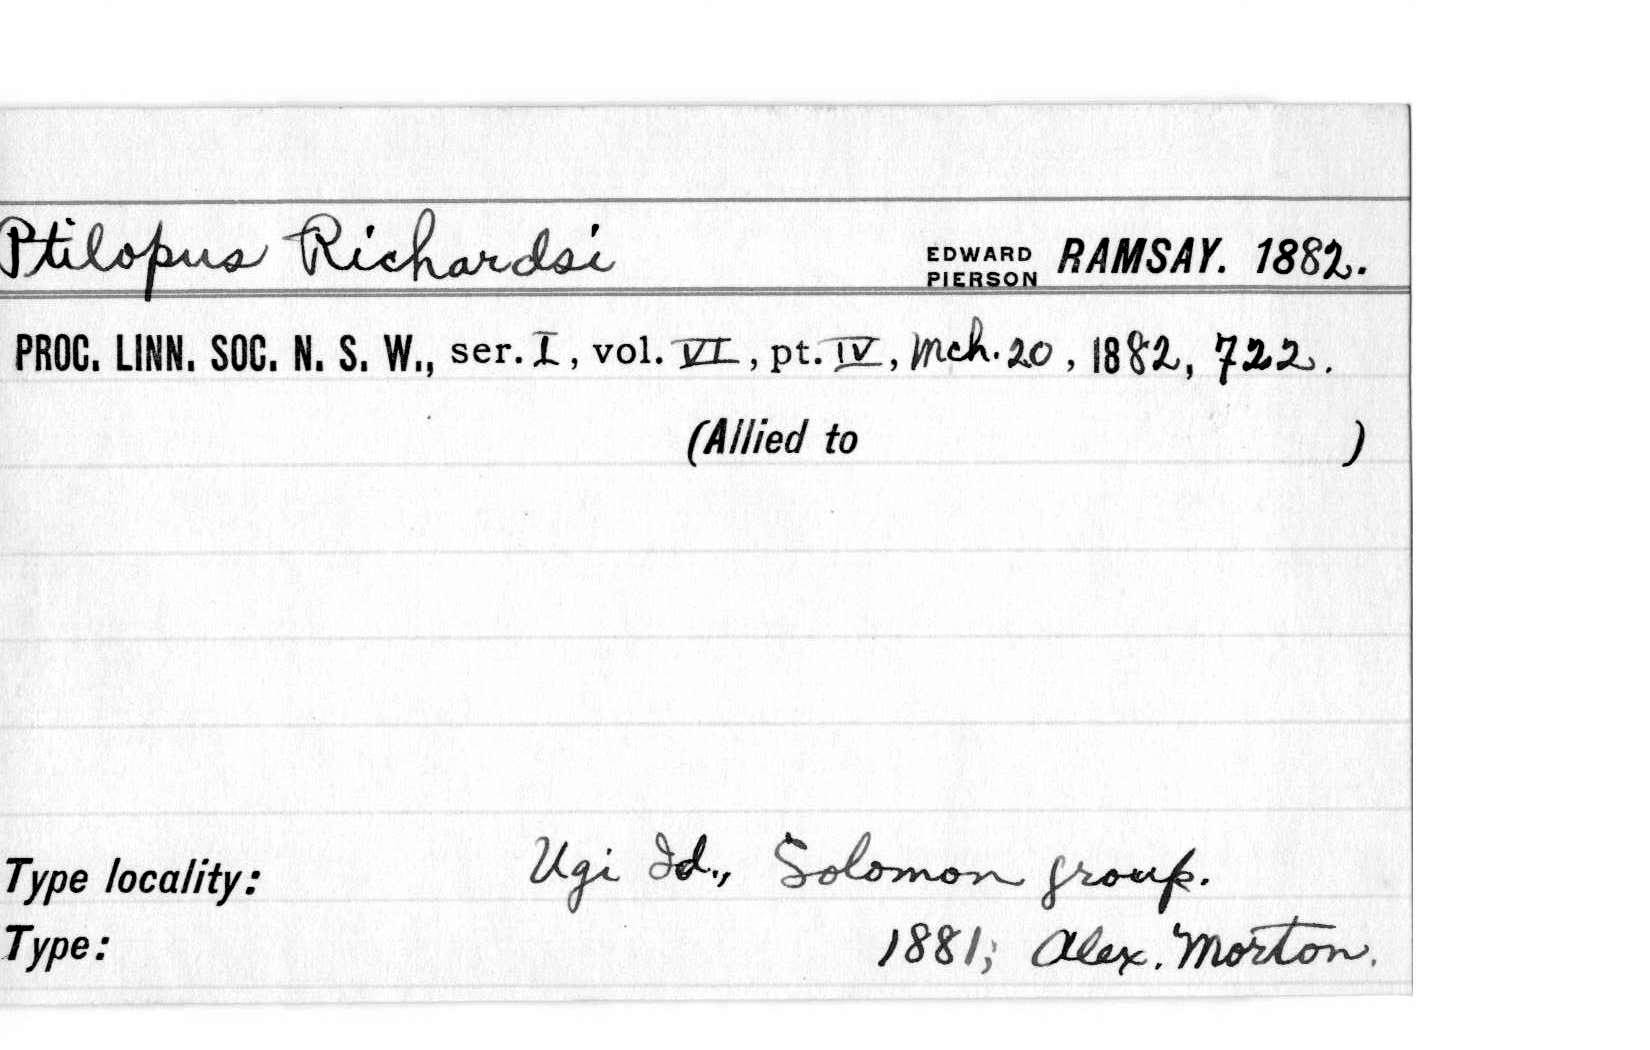 Ptilopus Richardsi EDWARD PIERSON RAMSAY. 1882.
PROC. LINN. SOC. N. S. W., ser. I, vol. VI, pt. IV, Mch. 20, 1882, 722.
(Allied to )
Type locality: Ugi Id., Solomon group.
Type: 1881; Alex. Morton.